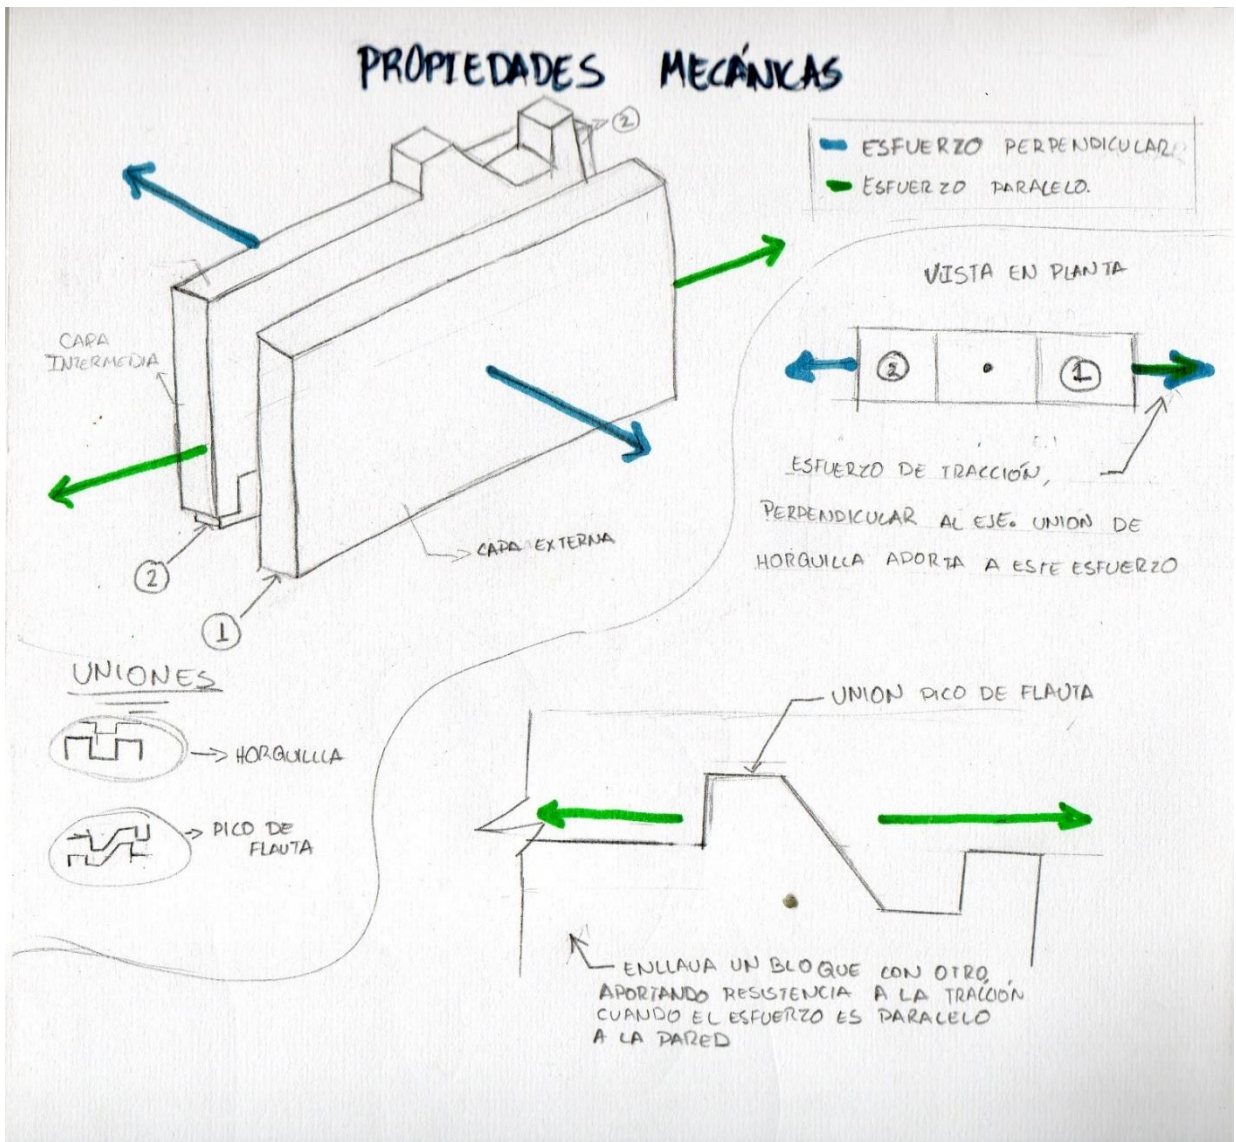 PROPIEDADES MECÁNICAS
2
ESFUERZO PERPENDICULAR
ESFUERZO PARALELO.
CAPA
INTERMEDIA
2
1
CAPA EXTERNA
VISTA EN PLANTA
2
1
ESFUERZO DE TRACCIÓN,
PERPENDICULAR AL EJE. UNIÓN DE
HORQUILLA APORTA A ESTE ESFUERZO
UNIONES
HORQUILLLA
PICO DE
FLAUTA
UNION PICO DE FLAUTA
ENLLAVA UN BLOQUE CON OTRO,
APORTANDO RESISTENCIA A LA TRACCIÓN
CUANDO EL ESFUERZO ES PARALELO
A LA PARED